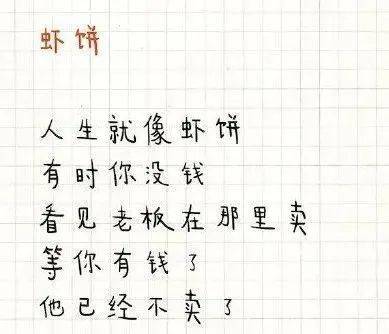 虾饼
人生就像虾饼
有时你没钱
看见老板在那里卖
等你有钱了
他已经不卖了